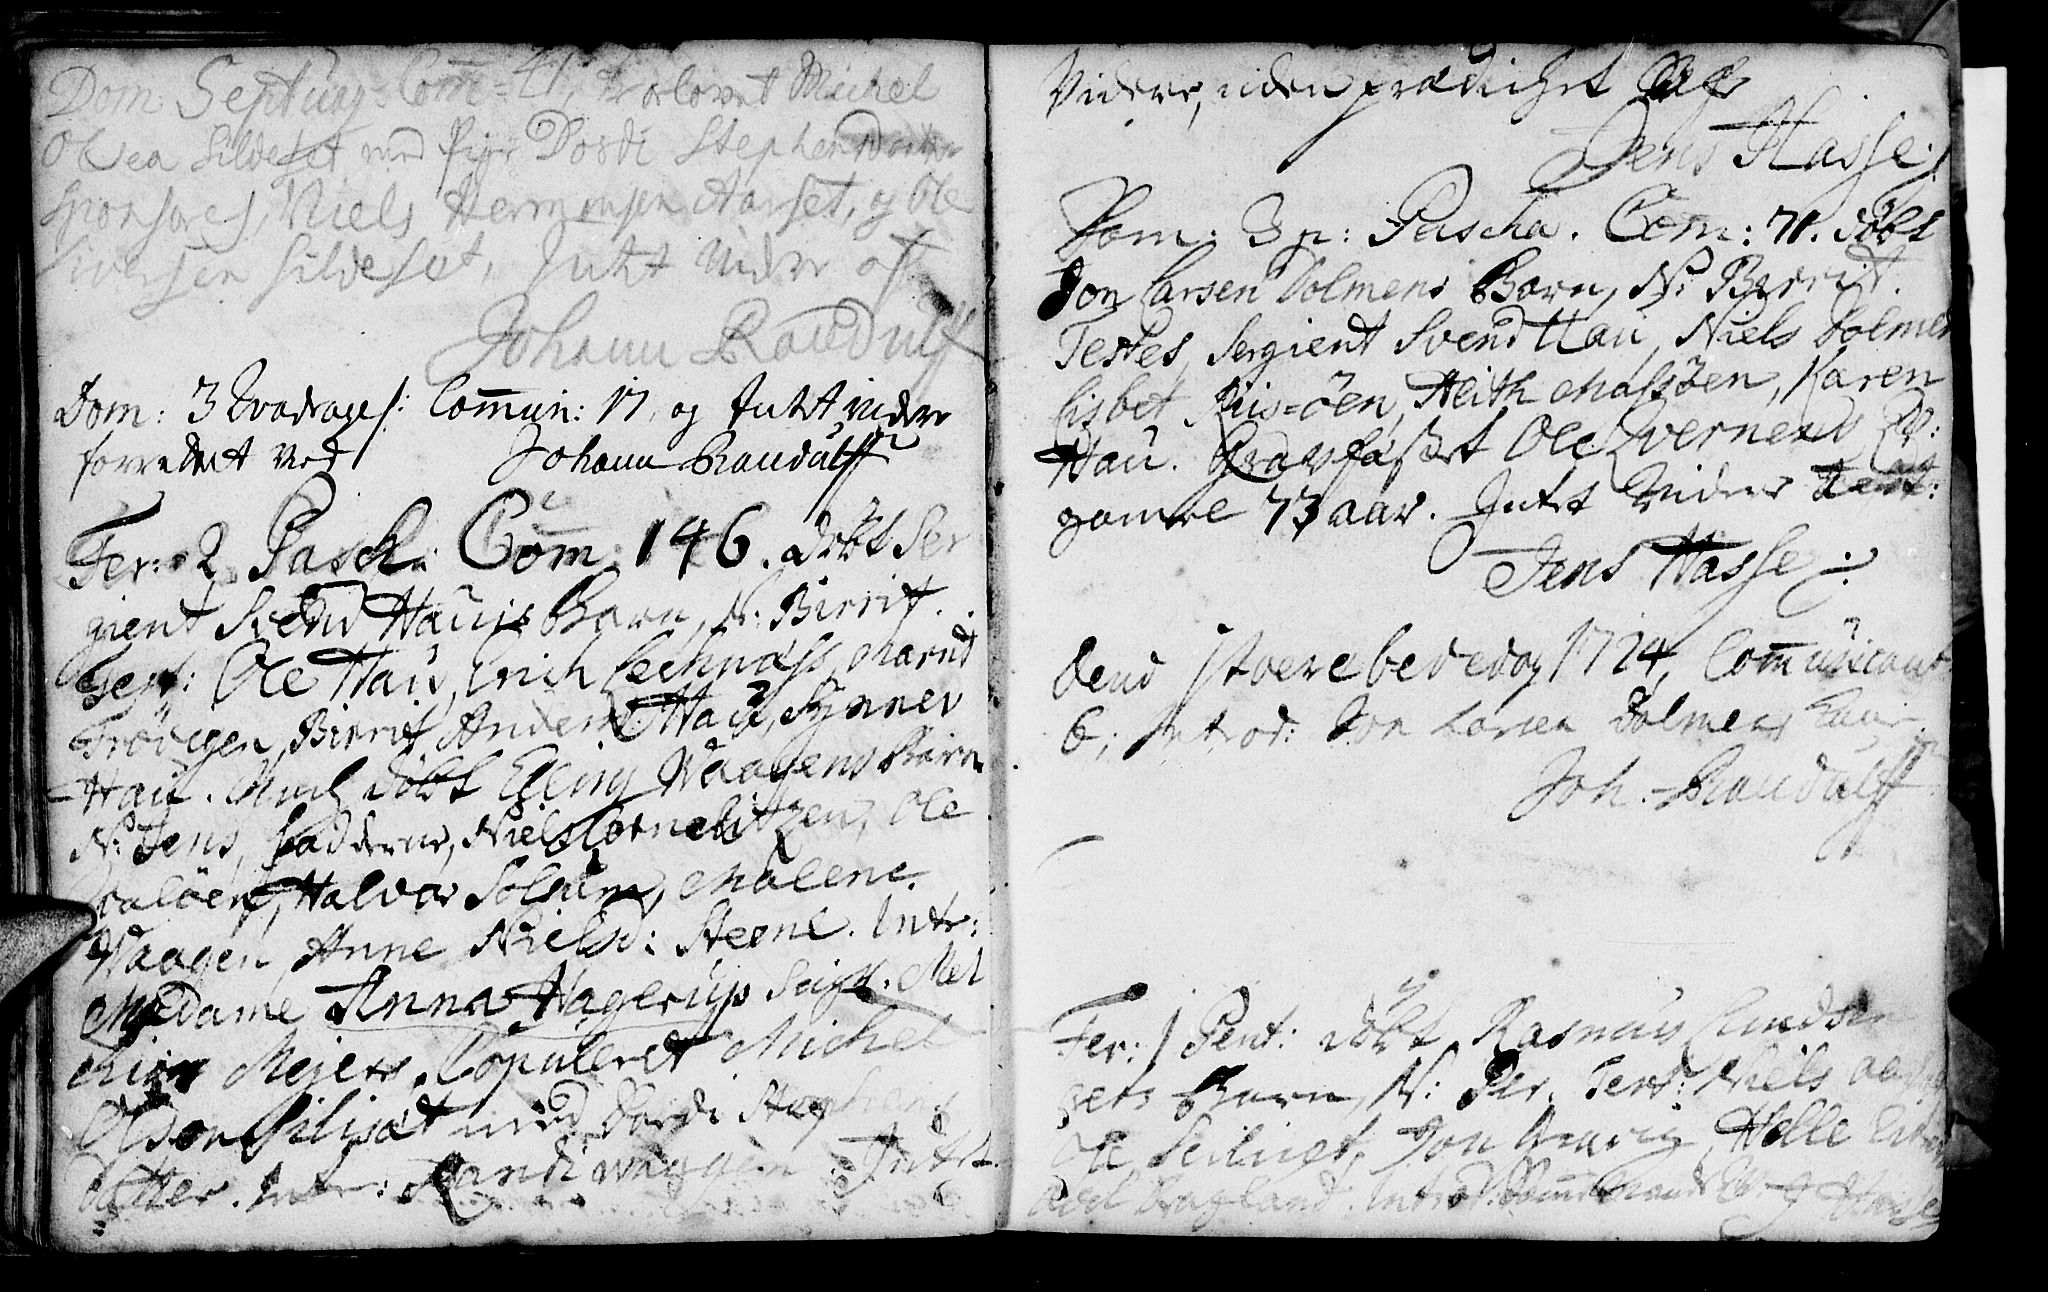 Dom Septuag: Com: 41, trolovet Michel
Olsen Sildeset med Pige Dordi Stephensdatter
Sponsores, Niels Hermonsen Aarset, og Ole
Siversen Sildeset, Intet Videre af
Johann Randulff
Dom: 3 Qvadrages: Commun: 17, og Intet videre
forrettet ved Johann Randulff
Fer: 2 Pasch: Com 146. døbt Ser
gient Svend Hauis Barn, N: Birrit.
Test: Ole Hau, Erich Lechnæss, Marit
Frövigen, Birrit Anders: Hau, Synnev
Hau. Noch döbt Elling Waagens Barn
N: Jens, fadderne, Niels Cornelitzen, Ole
Waagen, Halvor Solsum, Malene
Waagen, Anne Nielsd: Steene. Intr:
Madame Anna Hagerup Seigr. Mel
chior Mejers. Copuleret Michel
Olson Siliset med Dordi Stephens
datter. Intr: Randi Waagen. Intet
Videre, uden prædichet
Jens Hasse:/
Dom: 3 p: Pascha. Com: 71. döbt
Jon Larsen Dolmens Barn, N: Birrit.
Testes, Sergient Svend Hau, Niels Dolmen
Lisbet Riis-öen, Aleith Malsöen, Karen
Hau. Gravfæstet Ole Qvernes
gamel 73 aar. Intet Vider
Jens Hasse:
dend stoere bededag 1724, Communicant
6; Introd: Jon Larsen Dolmens
Joh. Randulff
Fer: 1 Pent: døbt Rasmus Knudsen
Barn, N: Per. Test: Niels
Ole Jon Helle
Introd: J Hasse